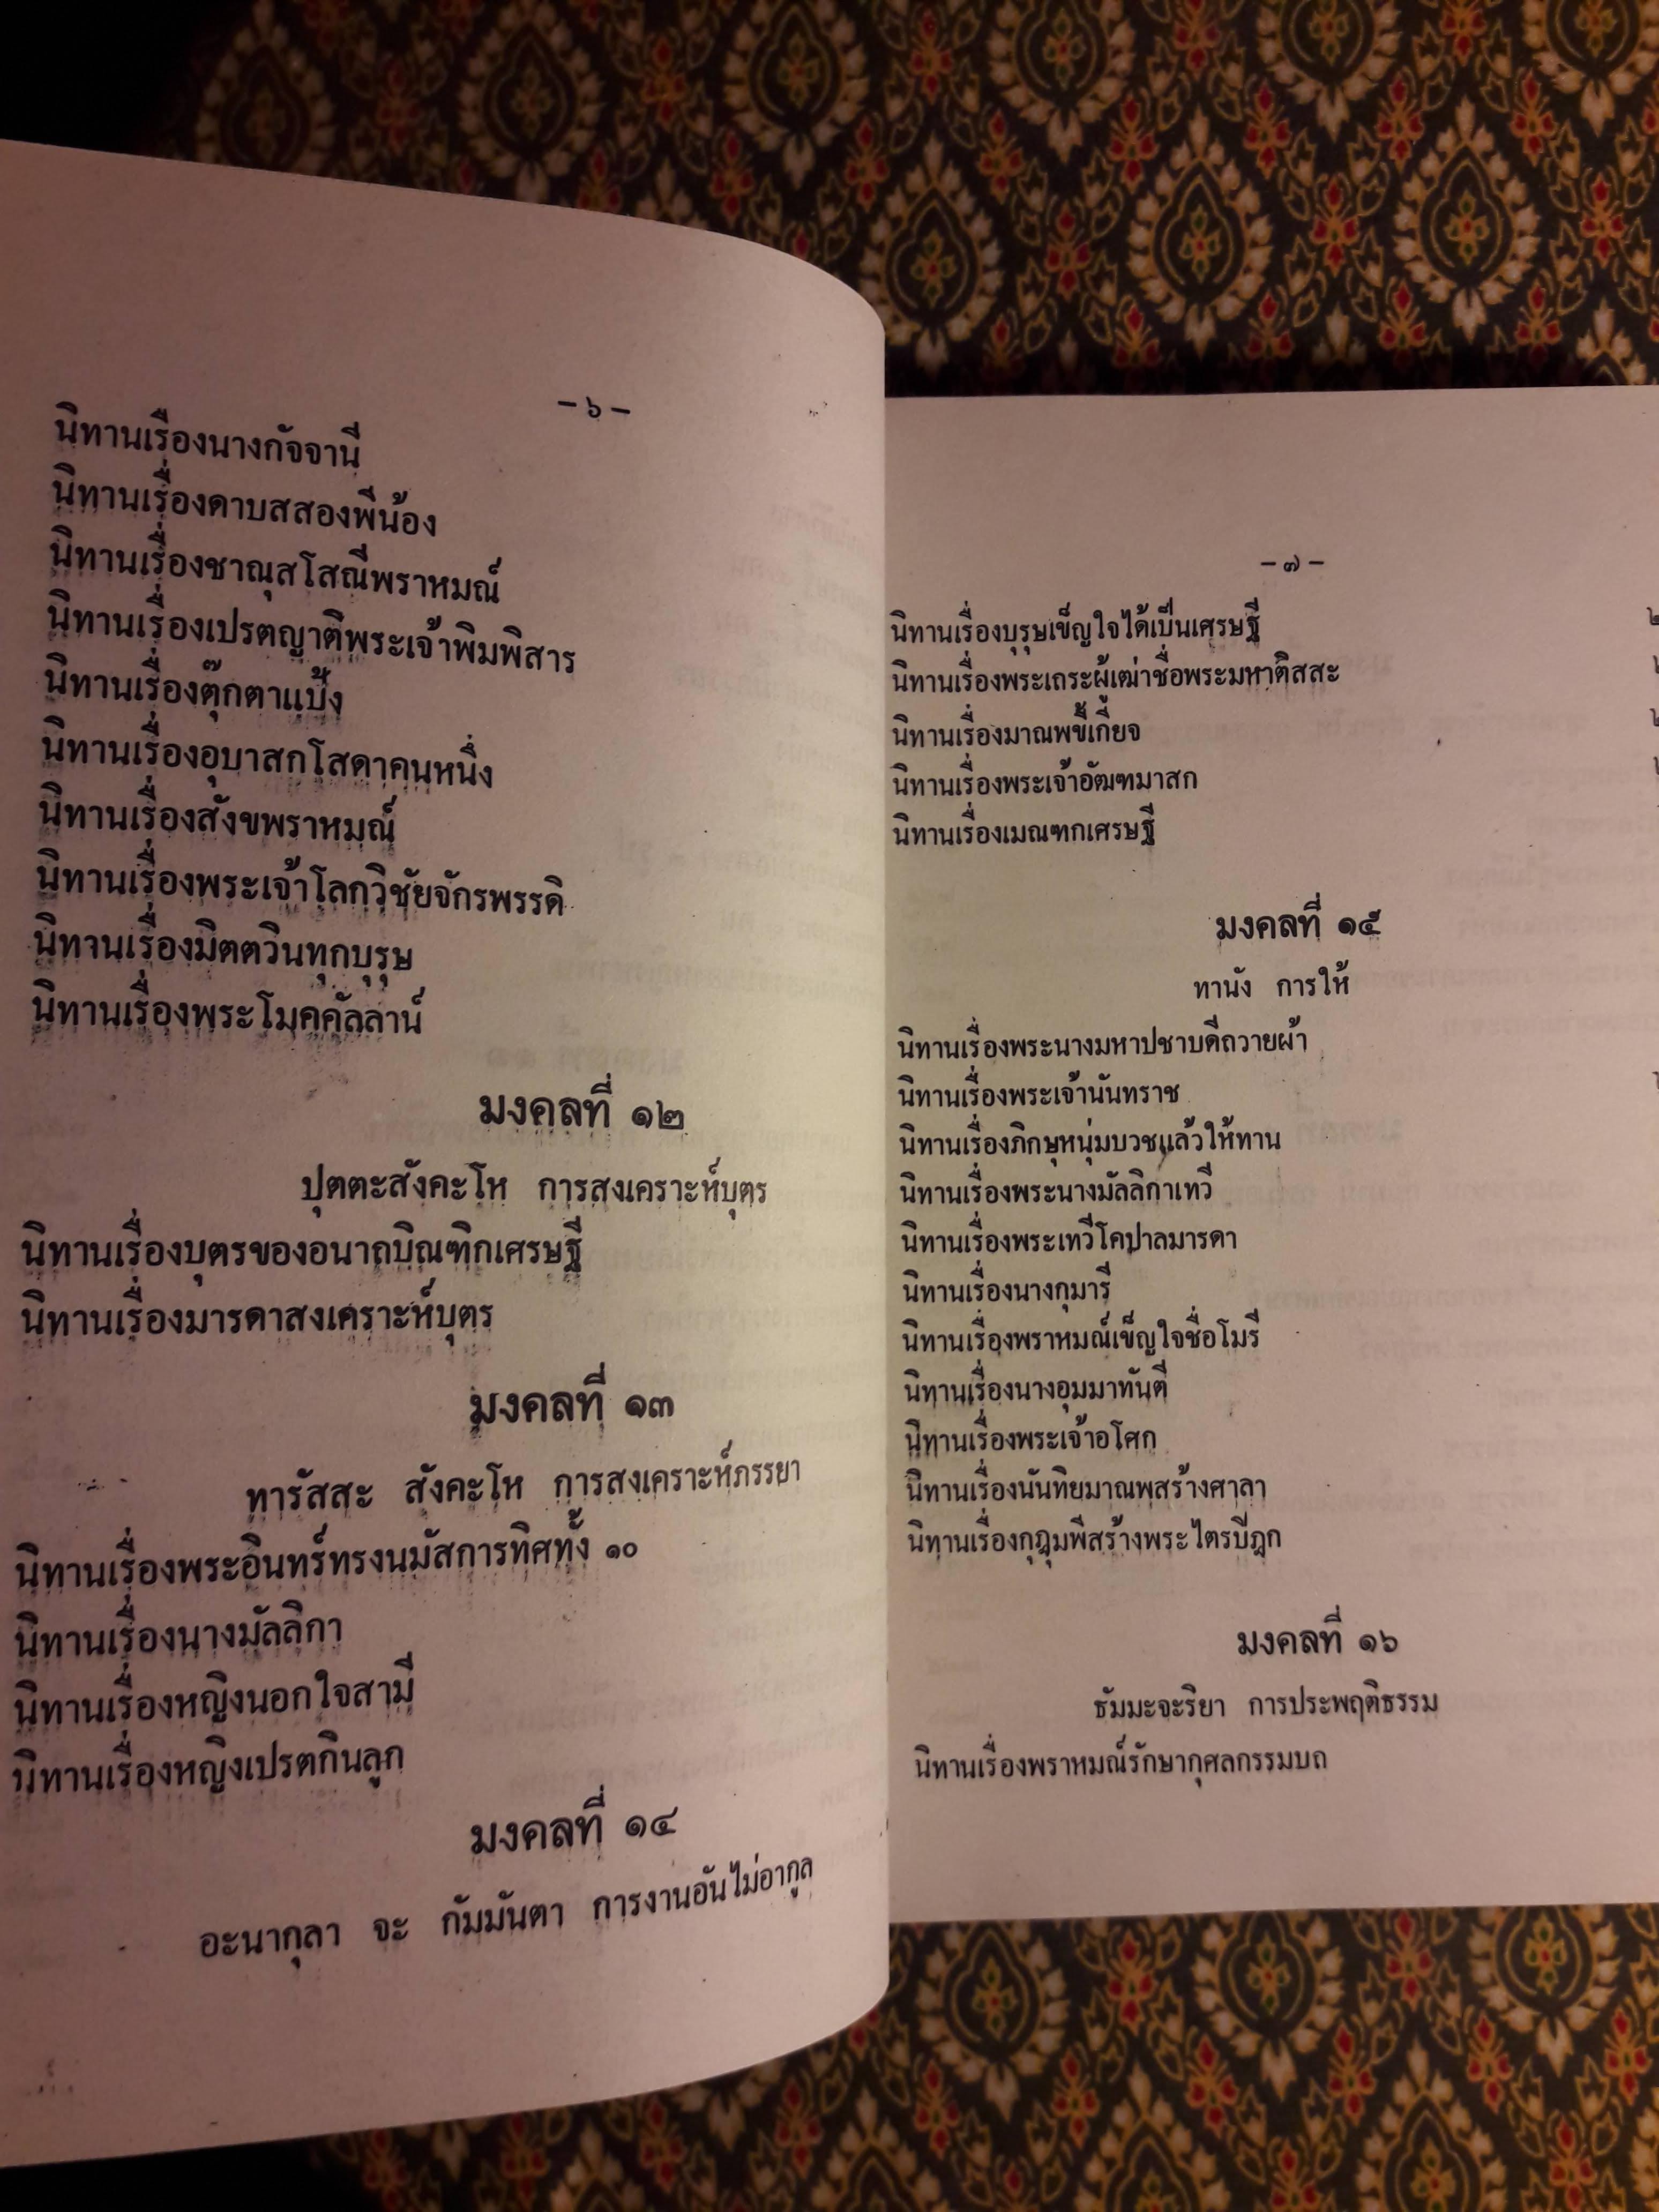 –๖–
นิทานเรื่องนางกัจจานี
นิทานเรื่องดาบสสองพี่น้อง
นิทานเรื่องชาณุสโสณีพราหมณ์
นิทานเรื่องเปรตญาติพระเจ้าพิมพิสาร
นิทานเรื่องตุ๊กตาแป้ง
นิทานเรื่องอุบาสกโสดาคนหนึ่ง
นิทานเรื่องสังขพราหมณ์
นิทานเรื่องพระเจ้าโลกวิชัยจักรพรรดิ
นิทานเรื่องมิตตวินทุกบุรุษ
นิทานเรื่องพระโมคคัลลาน์
มงคลที่ ๑๒
ปุตตะสังคะโห การสงเคราะห์บุตร
นิทานเรื่องบุตรของอนาถบิณฑิกเศรษฐี
นิทานเรื่องมารดาสงเคราะห์บุตร
มงคลที่ ๑๓
ทารัสสะ สังคะโห การสงเคราะห์ภรรยา
นิทานเรื่องพระอินทร์ทรงนมัสการทิศทั้ง ๑๐
นิทานเรื่องนางมัลลิกา
นิทานเรื่องหญิงนอกใจสามี
นิทานเรื่องหญิงเปรตกินลูก
มงคลที่ ๑๔
อะนากุลา จะ กัมมันตา การงานอันไม่อากูล
–๗–
นิทานเรื่องบุรุษเข็ญใจได้เป็นเศรษฐี
นิทานเรื่องพระเถระผู้เฒ่าชื่อพระมหาติสสะ
นิทานเรื่องมาณพขี้เกียจ
นิทานเรื่องพระเจ้าอัฒฑมาสก
นิทานเรื่องเมณฑกเศรษฐี
มงคลที่ ๑๕
ทานัง การให้
นิทานเรื่องพระนางมหาปชาบดีถวายผ้า
นิทานเรื่องพระเจ้านันทราช
นิทานเรื่องภิกษุหนุ่มบวชแล้วให้ทาน
นิทานเรื่องพระนางมัลลิกาเทวี
นิทานเรื่องพระเทวีโคปาลมารดา
นิทานเรื่องนางกุมารี
นิทานเรื่องพราหมณ์เข็ญใจชื่อโมรี
นิทานเรื่องนางอุมมาทันตี
นิทานเรื่องพระเจ้าอโศก
นิทานเรื่องนันทิยมาณพสร้างศาลา
นิทานเรื่องกุฎุมพีสร้างพระไตรปิฎก
มงคลที่ ๑๖
ธัมมะจะริยา การประพฤติธรรม
นิทานเรื่องพราหมณ์รักษากุศลกรรมบถ